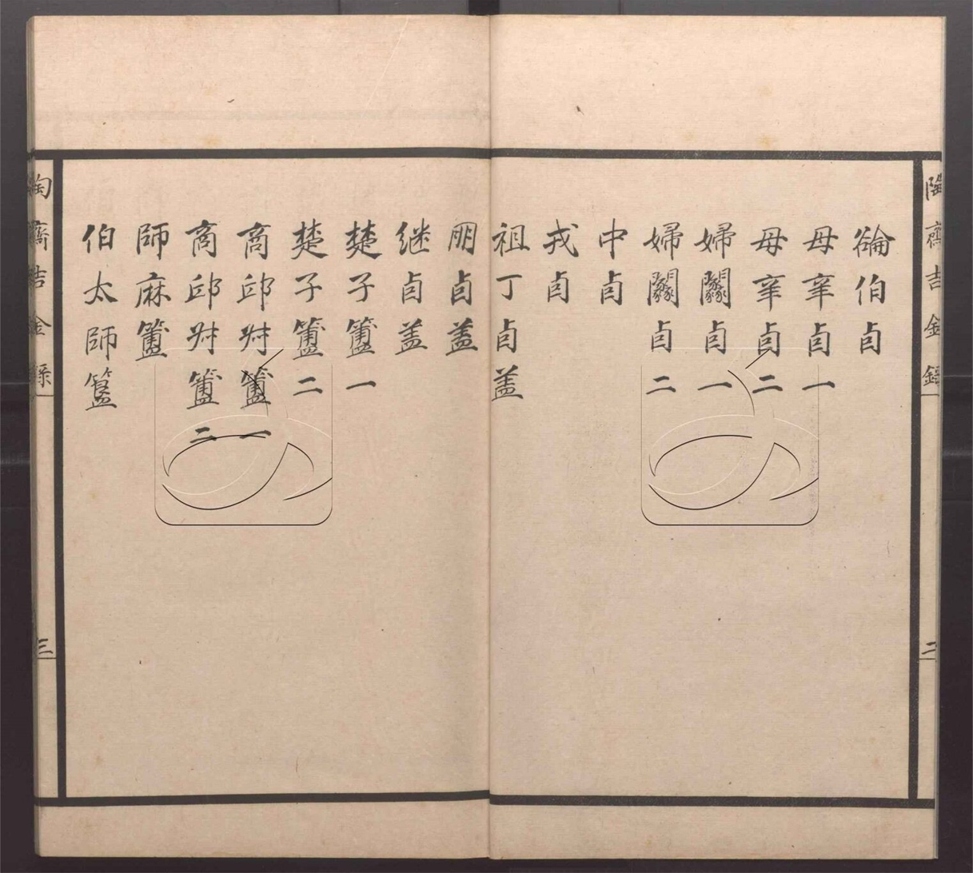 陶齋吉金錄
二
綸伯卣
母辛卣一
母辛卣二
婦闗卣一
婦闗卣二
中卣
戎卣
祖丁卣盖
朋卣盖
継卣盖
楚子簠一
楚子簠二
商邱叔簠一
商邱叔簠二
師麻簠
伯太師簋
陶齋吉金錄
三